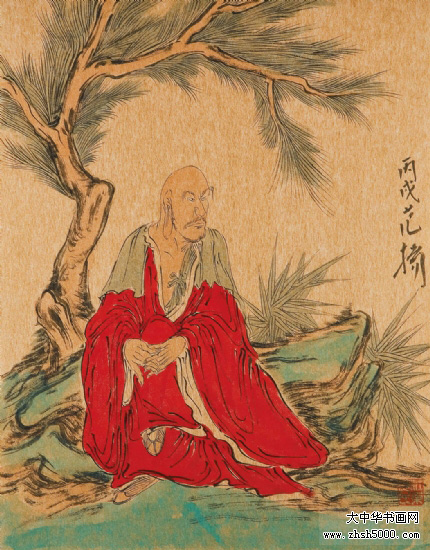 丙戌范揚
大中华书画网
www.zhsh5000.com